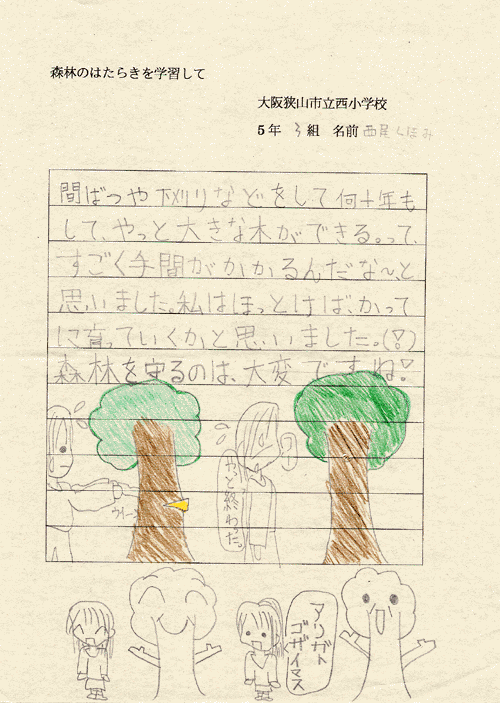 森林のはたらきを学習して
大阪狭山市立西小学校
5年 3組 名前 西尾くほみ
間ばつや下刈りなどをして何十年も
して、やっと大きな木ができる。って、
すごく手間がかかるんだな〜、と
思いました。私はほっとけば、かって
に育っていくかと思いいました。(!?)
森林を守るのは、大変ですね!
ウィーン
やっと終わった。
アリガト
ゴザイマス